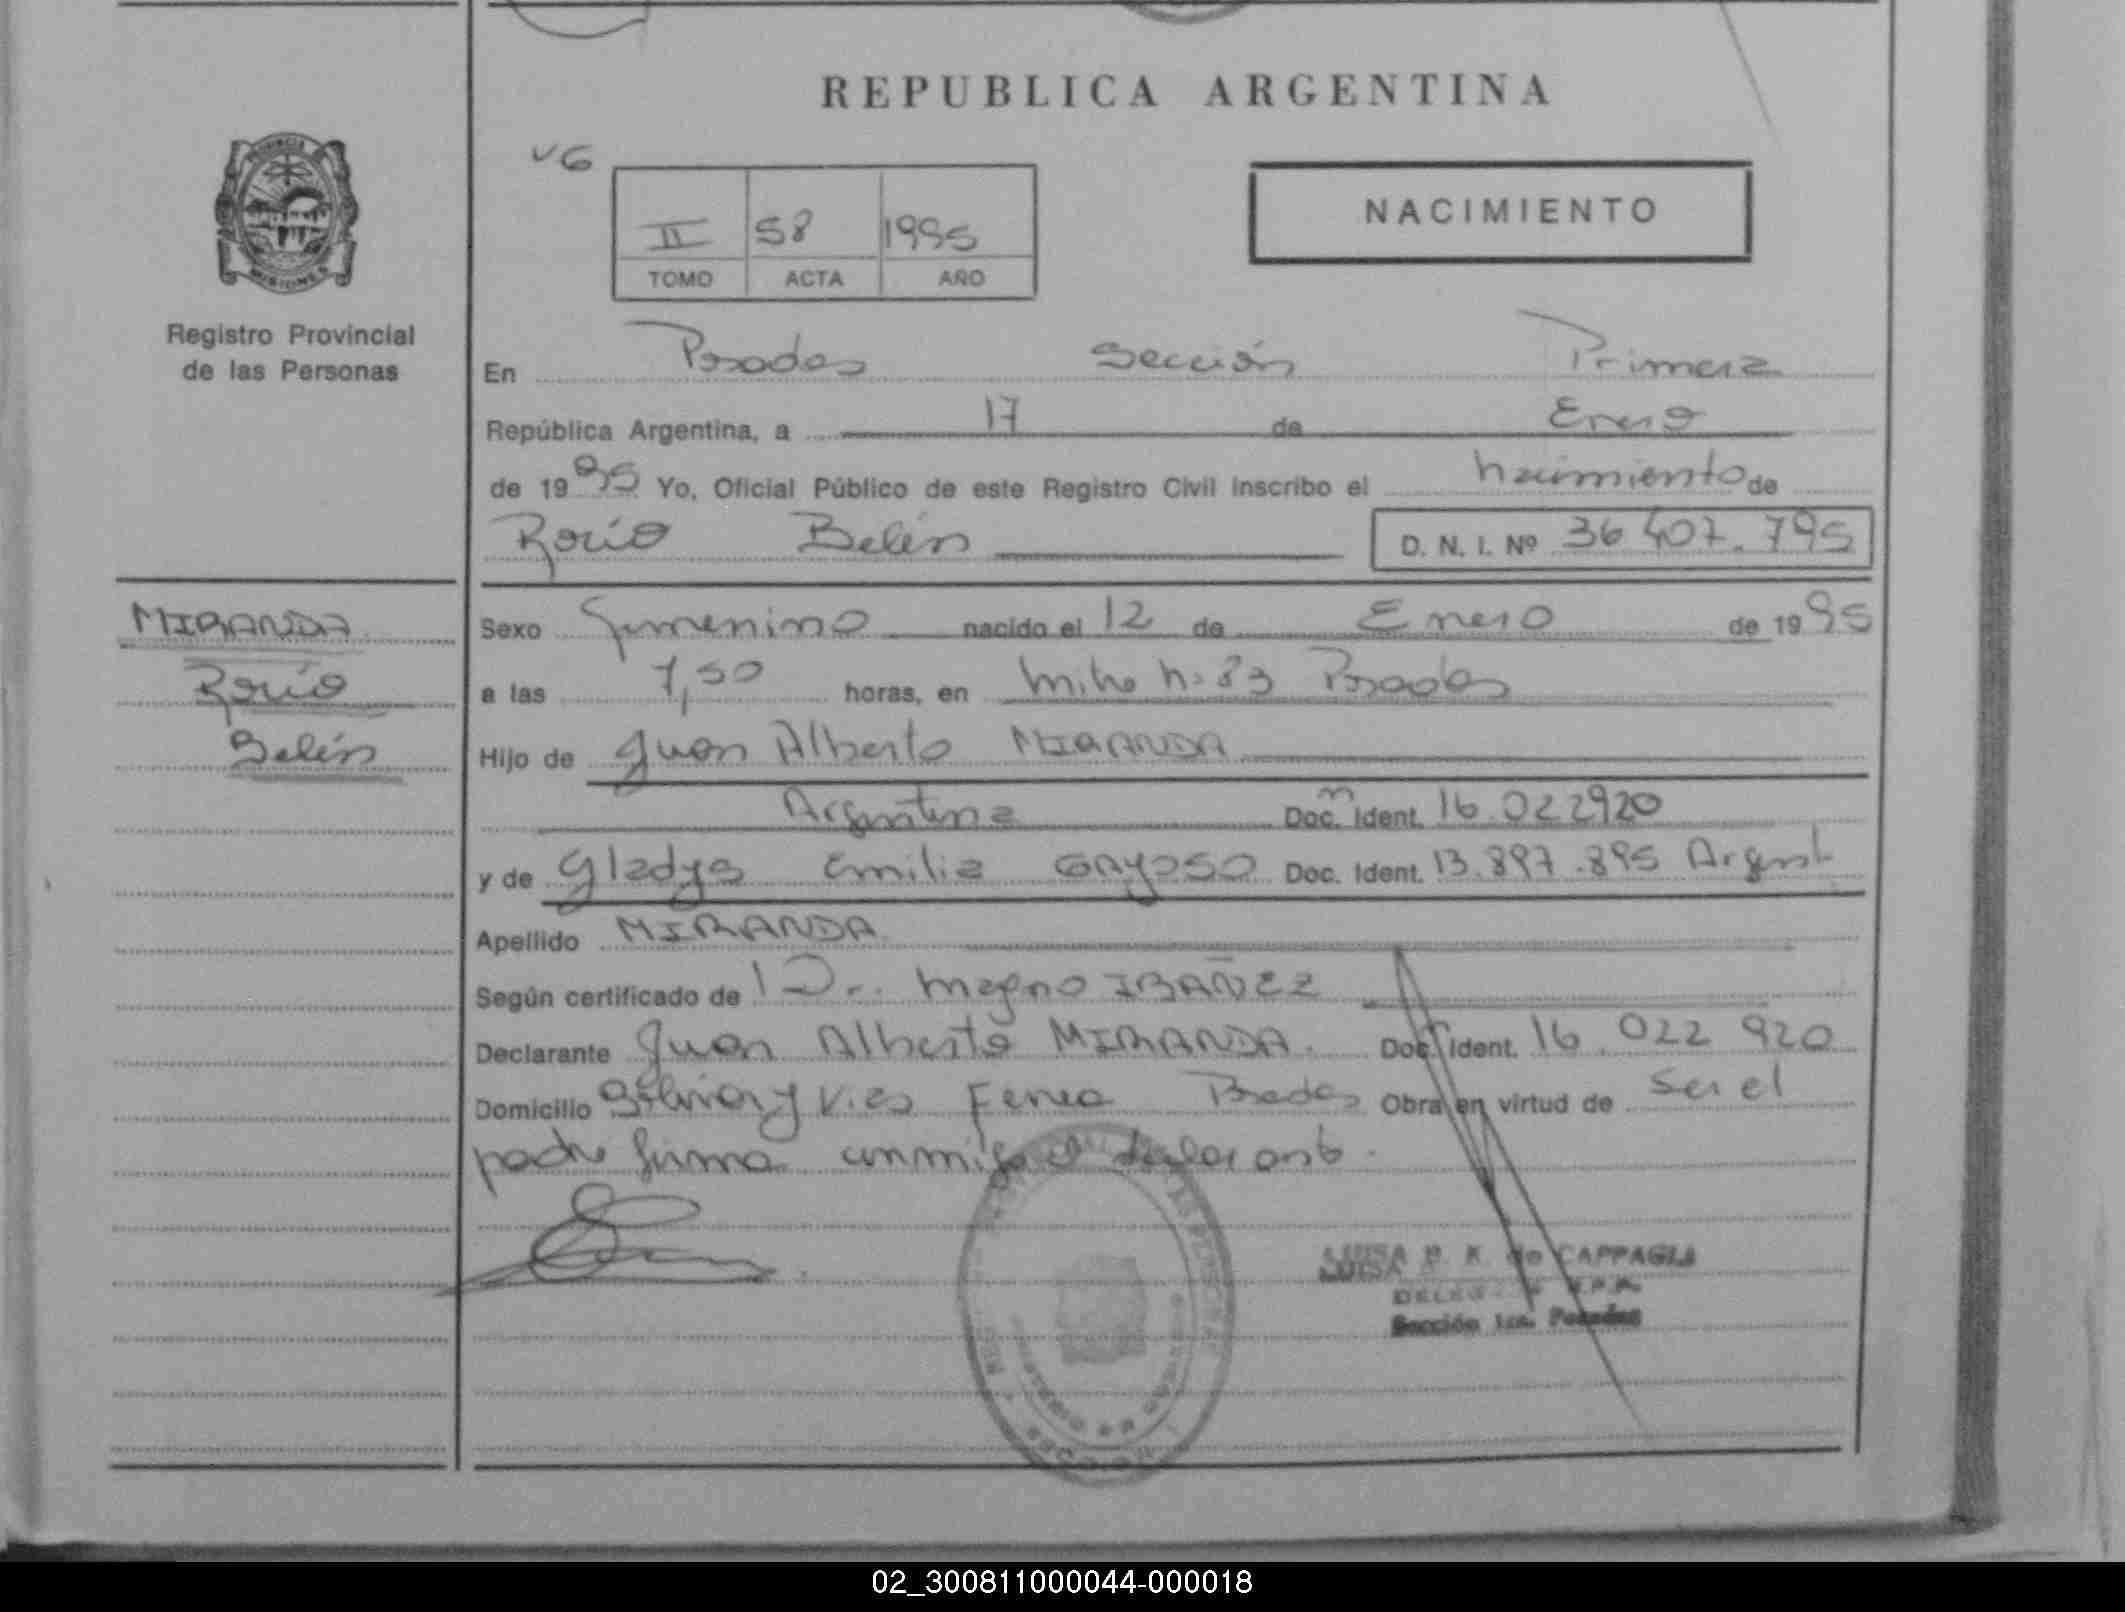 REPUBLICA ARGENTINA
PROVINCIA
MISIONES
Registro Provincial
de las Personas
V6
II 58 1995
TOMO ACTA AÑO
NACIMIENTO
En Posadas Sección Primera
República Argentina, a 17 de Enero
de 1995 Yo, Oficial Público de este Registro Civil inscribo el nacimiento de
Rocío Belén D. N. I. Nº 36 407.795
MIRANDA
Rocío
Belén
Sexo femenino nacido el 12 de Enero de 1995
a las 7,50 horas, en Posadas
Hijo de Juan Alberto MIRANDA
Argentina Doc. Ident. 16.022920
y de Gladys Emilia GAYOSO Doc. Ident. 13.897.895 Argent
Apellido MIRANDA
Según certificado de Dr. Magno IBAÑEZ
Declarante Juan Alberto MIRANDA. Doc. Ident. 16.022 920
Domicilio y Posadas Obra en virtud de ser el
padre firma conmigo el declarante.
LUISA de CAPPAGLI
Sección 1ra. Posadas
02_300811000044-000018